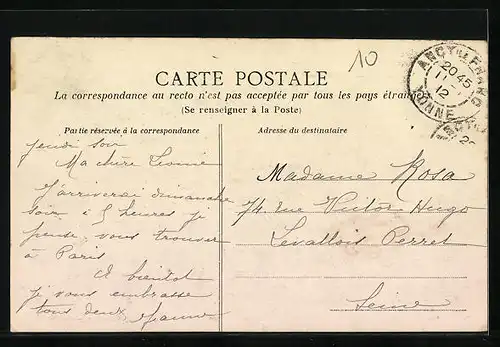 10
ANCY-LE-FRANC
20 45
11
12
YONNE
CARTE POSTALE
La correspondance au recto n'est pas acceptée par tous les pays étran
(Se renseigner à la Poste)
Partie réservée à la correspondance
jeudi soir
Ma chère Léonie
J'arriverai dimanche
soir à 5 heures je
pense vous trouver
à Paris
A bientôt
je vous embrasse
tous deux Jeanne
Adresse du destinataire
Madame Rosa
74 rue Victor Hugo
Levallois Perret
Seine